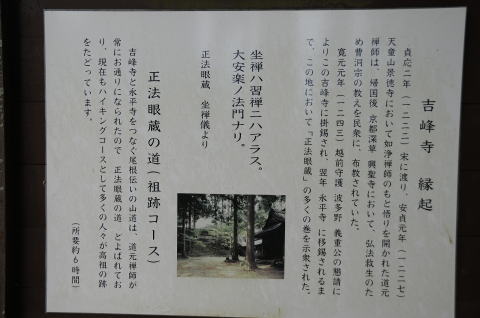 吉峰寺 縁起
貞応二年(一二二三)宋に渡り、安貞元年(一二二七)
天童山景徳寺において如浄禅師のもと悟りを開かれた道元
禅師は、帰国後 京都深草 興聖寺において、弘法救生のた
め曹洞宗の教えを民衆に、布教されていた。
寛元元年(一二四三)越前守護 波多野 義重公の懇請に
よりこの吉峰寺に掛錫され、翌年 永平寺 に移錫されるま
で、この地において『正法眼蔵』の多くの巻を示衆された。
坐禅ハ習禅ニハアラス。
大安楽ノ法門ナリ。
正法眼蔵 坐禅儀より
正法眼蔵の道(祖跡コース)
吉峰寺と永平寺をつなぐ尾根伝いの山道は、道元禅師が
常にお通りになられたので 正法眼蔵の道、とよばれてお
り、現在もハイキングコースとして多くの人々が高祖の跡
をたどっています。
(所要約6時間)